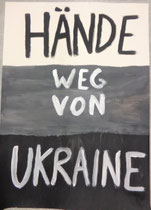 HÄNDE
WEG
VON
UKRAINE